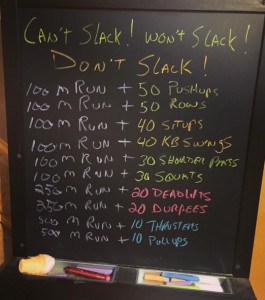 Can't Slack! Won't Slack!
Don't Slack!
100 m Run + 50 Pushups
100 m Run + 50 Rows
100 m Run + 40 Situps
100 m Run + 40 KB Swings
100 m Run + 30 Shoulder Press
100 m Run + 30 Squats
250 m Run + 20 Deadlifts
250 m Run + 20 Burpees
500 m Run + 10 Thrusters
500 m Run + 10 Pullups